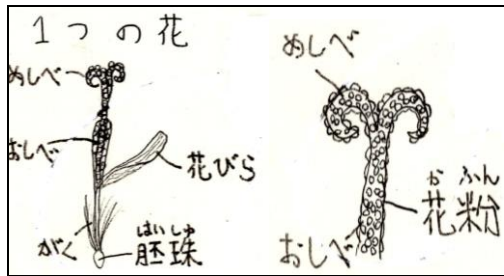 １つの花
めしべ
おしべ
花びら
がく
はいしゅ
胚珠
めしべ
かふん
花粉
おしべ